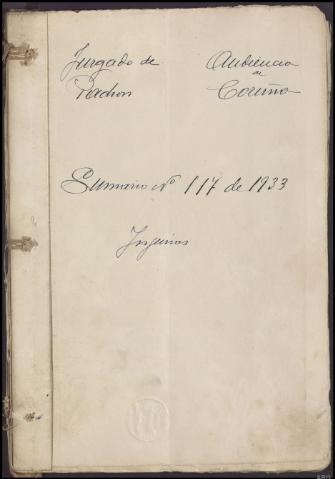 Juzgado de
Padron
Audiencia
de
Coruña
Sumario Nº 117 de 1933
Injurias